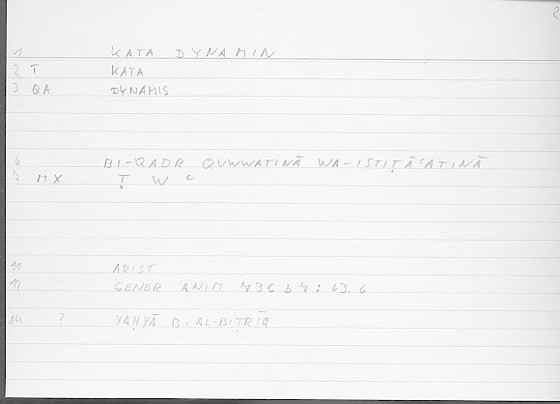 2
1 KATA DYNAMIN
2 T KATA
3 QA DYNAMIS
6 BI-QADR QUWWATINĀ WA-ISTIṬĀʿATINĀ
9 MX Ṭ W ʿ
11 ARIST
12 GENER ANIM 736 b 7 : 63.6
14 ? YAḤYĀ B. AL-BIṬRĪQ